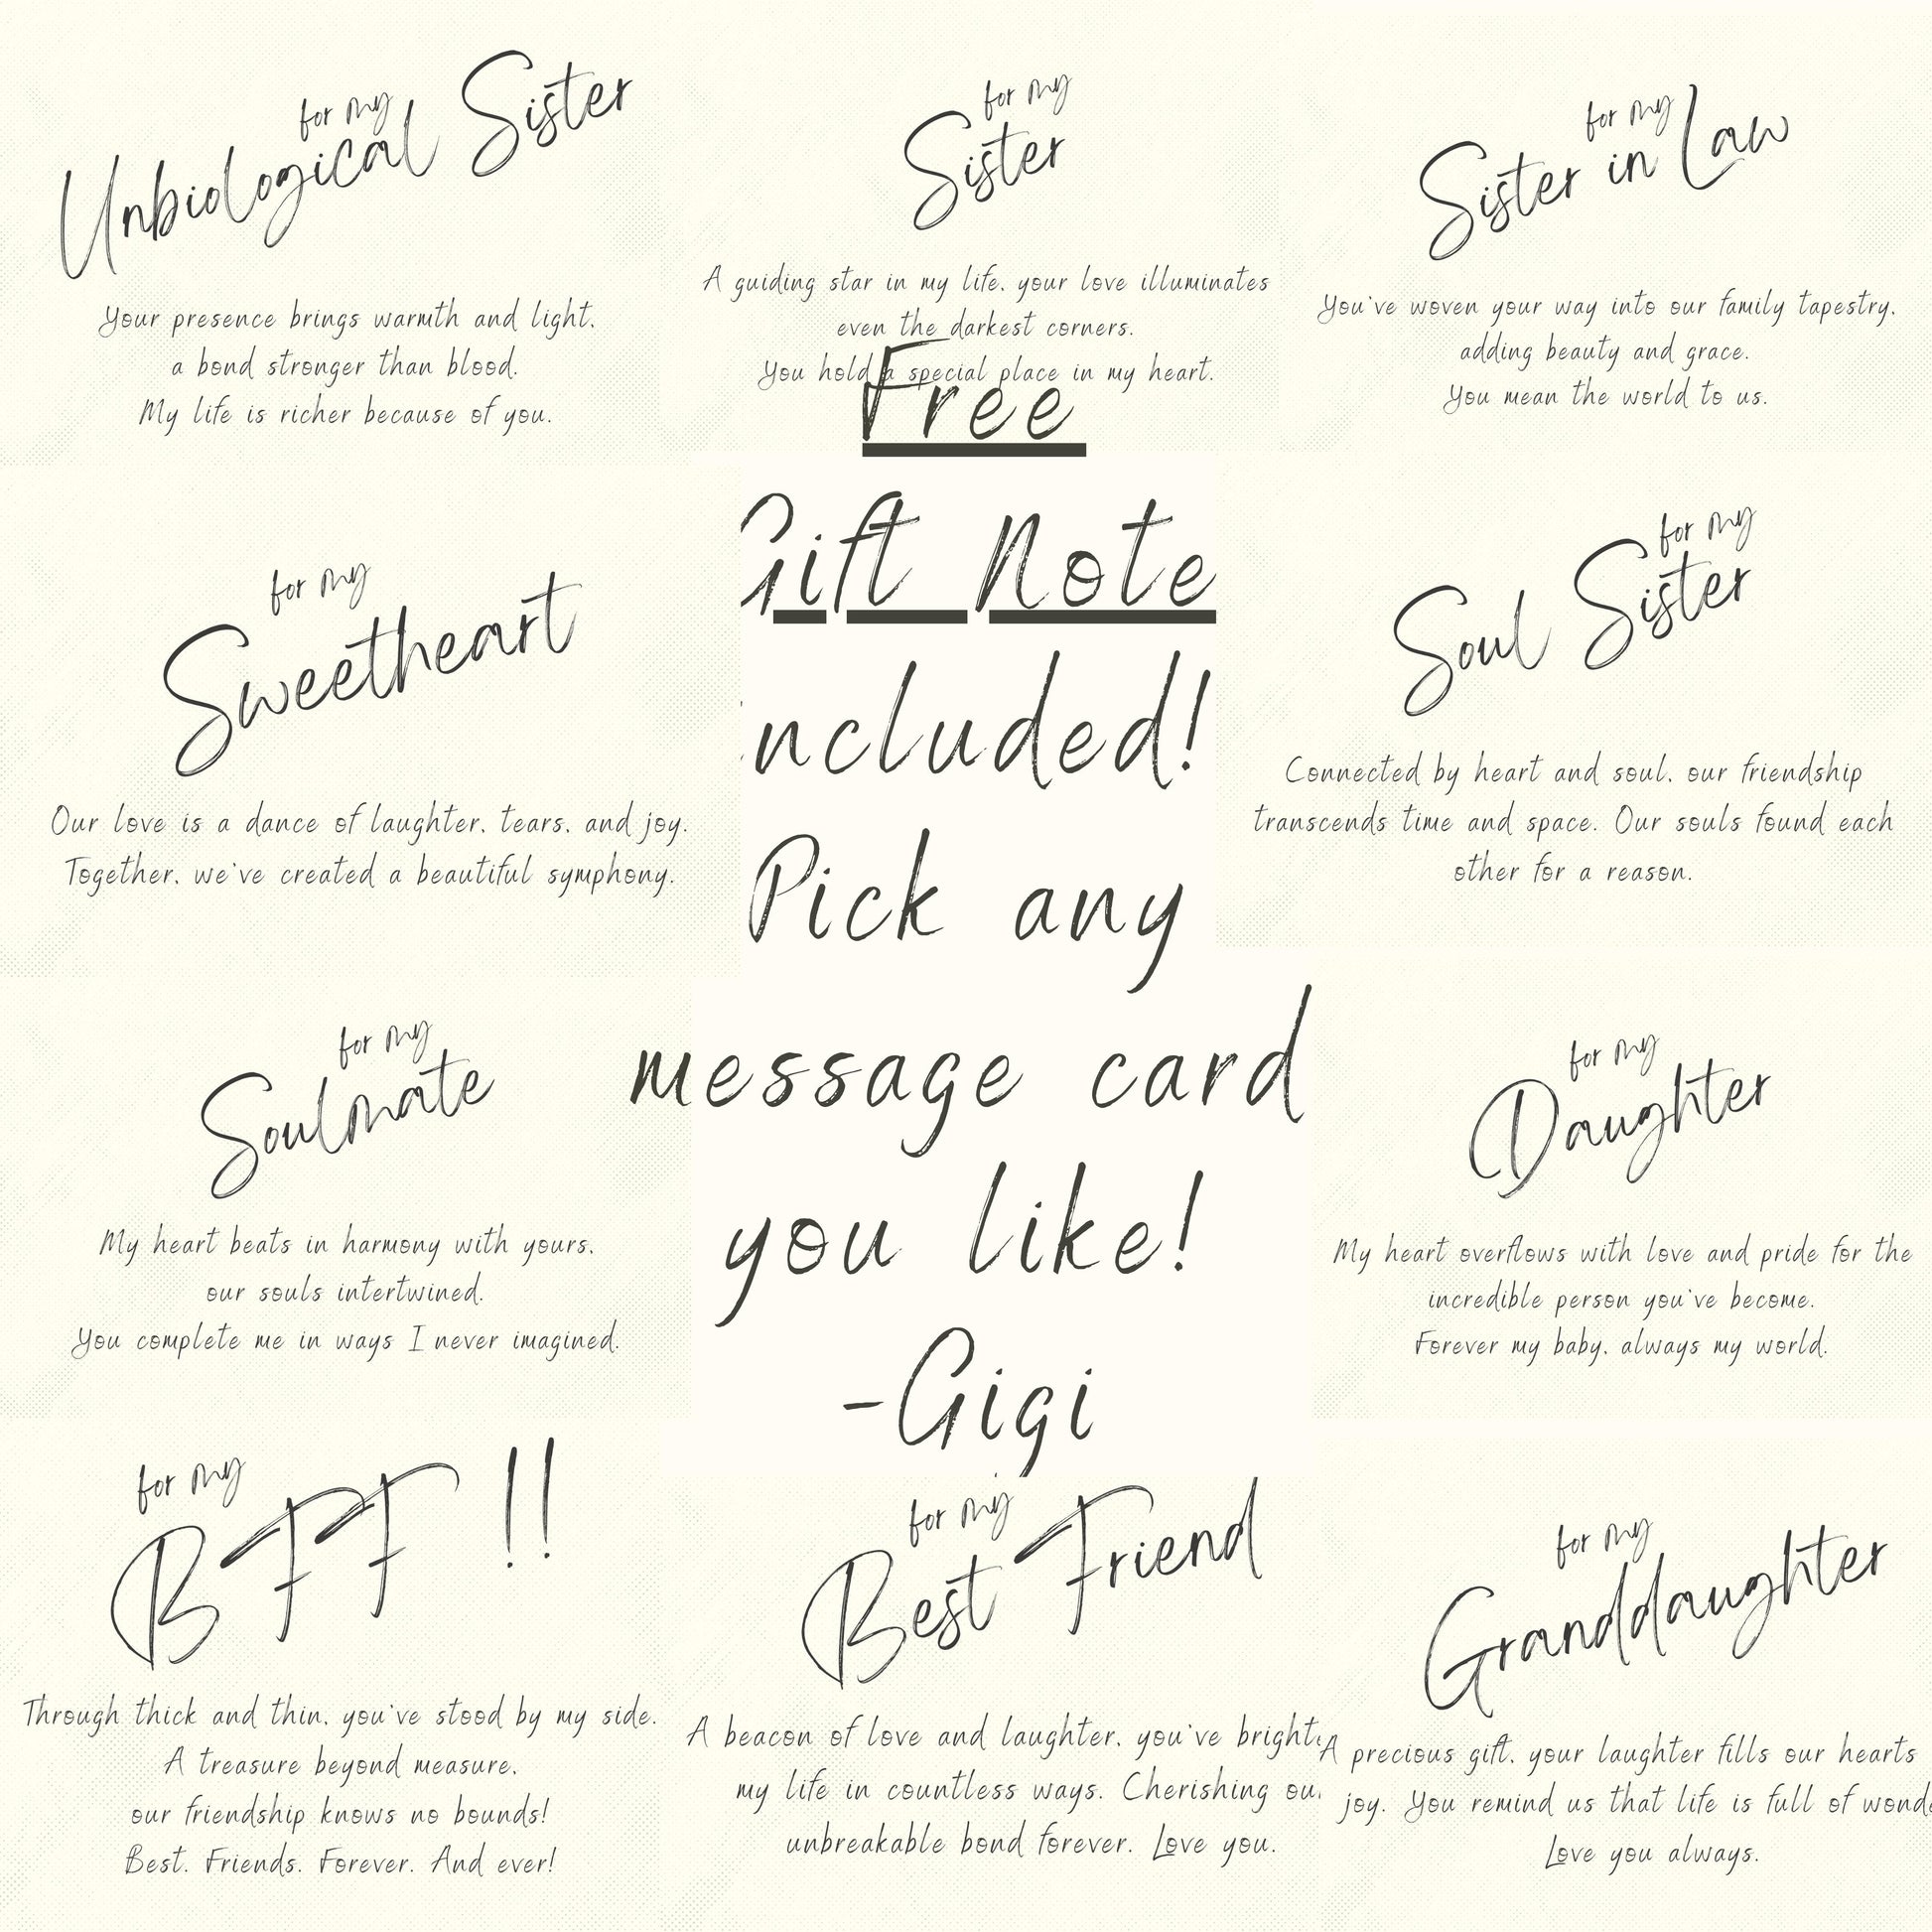 for my
Unbiological Sister
Your presence brings warmth and light,
a bond stronger than blood.
My life is richer because of you.
for my
Sister
A guiding star in my life, your love illuminates
even the darkest corners.
You hold a special place in my heart.
for my
Sister in Law
You've woven your way into our family tapestry,
adding beauty and grace.
You mean the world to us.
Free
Gift Note
ncluded!
Pick any
message card
you like!
-Gigi
for my
Sweetheart
Our love is a dance of laughter, tears, and joy.
Together, we've created a beautiful symphony.
for my
Soul Sister
Connected by heart and soul, our friendship
transcends time and space. Our souls found each
other for a reason.
for my
Soulmate
My heart beats in harmony with yours,
our souls intertwined.
You complete me in ways I never imagined.
for my
Daughter
My heart overflows with love and pride for the
incredible person you've become.
Forever my baby, always my world.
for my
BFF !!
Through thick and thin, you've stood by my side.
A treasure beyond measure,
our friendship knows no bounds!
Best. Friends. Forever. And ever!
for my
Best Friend
A beacon of love and laughter, you've bright
my life in countless ways. Cherishing ou
unbreakable bond forever. Love you.
for my
Granddaughter
A precious gift, your laughter fills our hearts
joy. You remind us that life is full of wond
Love you always.